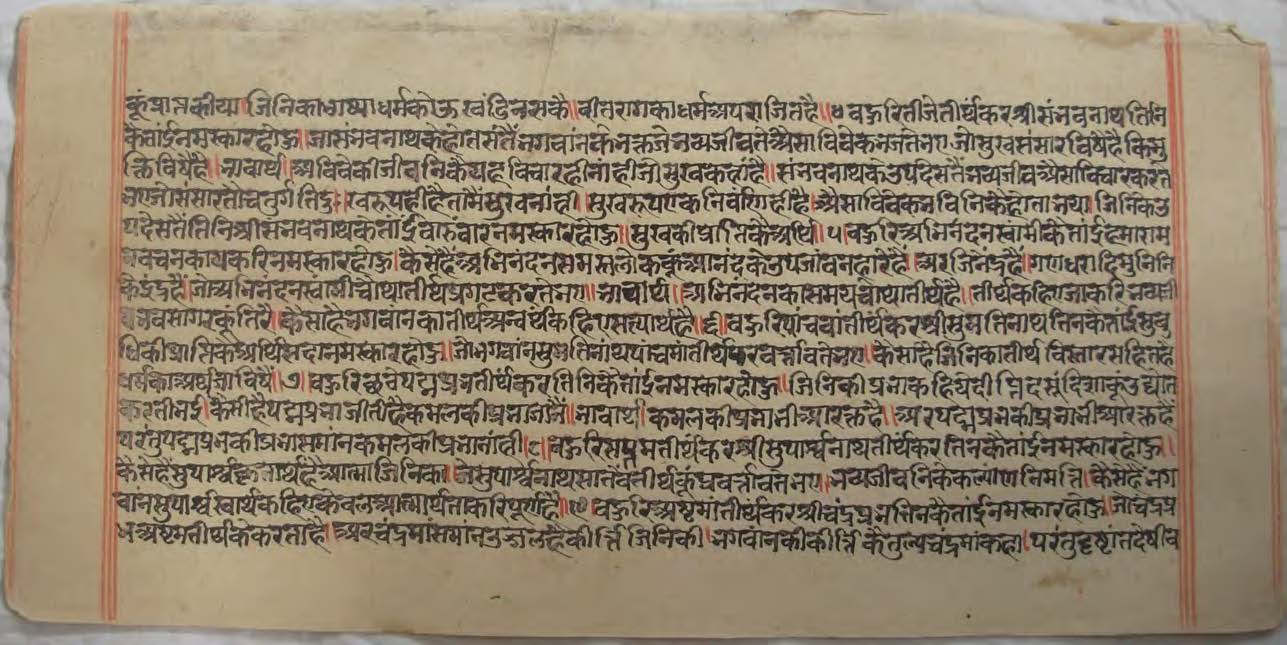 कूं प्राप्त कीया॥ जिनिका भाष्या धर्मकों कोऊ खंडि न सकै॥ वीतरागका धर्म अपराजित है॥ ४ बहुरि तीजे तीर्थंकर श्री संभवनाथ तिनि
कै तांई नमस्कार होऊ॥ जा संभवनाथके होत संतै भगवानके भक्त जे भव्य जीव ते अैसा विवेक भजते भए जो सुख संसार विषै है कि मु
क्ति विषै है॥ भावार्थ॥ अविवेकी जीवनिकै यह विचार ही नांही जो सुख कहां है॥ संभवनाथके उपदेसतैं भव्य जीव अैसा विचार करत
भए जो संसार तो चतुर्गति दुःखरूप ही है तामैं सुख नांही॥ सुखरूप एक निर्वाण ही है॥ अैसा विवेक भविनिकै होता भया॥ जिनिके उ
पदेसतैं तिनि श्री संभवनाथकै तांई वारंवार नमस्कार होऊ॥ सुखकी प्राप्तिकै अर्थि॥ ५ बहुरि अभिनंदन स्वामीकै तांई हमारा म
न वचन काय करि नमस्कार होऊ॥ कैसे हैं अभिनंदन समस्त लोककूं आनंदके उपजावनहारे हैं॥ अर जिनेंद्र हैं॥ गणधरादि मुनिनि
के इंद्र हैं॥ जो अभिनंदन स्वामी चौथा तीर्थ प्रगट करते भए॥ भावार्थ॥ अभिनंदनका समय चौथा तीर्थ है॥ तीर्थ कहिए जाकरि भव्य जी
व भवसागरकूं तिरै॥ कैसा है भगवानका तीर्थ अन्वर्थ कहिए सत्यार्थ है॥ ६॥ बहुरि पांचवां तीर्थंकर श्री सुमतिनाथ तिनकै तांई सुबु
धिकी प्राप्तिकै अर्थि सदा नमस्कार होऊ॥ जो भगवान सुमतिनाथ पांचमां तीर्थ प्रवर्त्तावते भए॥ कैसा है जिनिका तीर्थ विस्तार सहित है
धर्मका अर्थ जा विषैं॥ ७॥ बहुरि छठे पद्मप्रभ तीर्थंकर तिनिकै तांई नमस्कार होऊ॥ जिनिकी प्रभा कहिये दीप्ति दसूं दिशाकूं उद्योत
करती भई॥ कैसी है पद्मप्रभा जीती है कमलकी प्रभा जानैं॥ भावार्थ॥ कमलकी प्रभा भी आरक्त है॥ अर पद्मप्रभकी प्रभा भी आरक्त है॥
परंतु पद्मप्रभकी प्रभा समान कमलकी प्रभा नांही॥ ८॥ बहुरि सप्तम तीर्थंकर श्री सुपार्श्वनाथ तीर्थंकर तिनकै तांई नमस्कार होऊ॥
कैसे हैं सुपार्श्व कृतार्थ है आत्मा जिनिका॥ जे सुपार्श्वनाथ सातवें तीर्थकूं प्रवर्त्तावते भए॥ भव्य जीवनिके कल्याण निमित्त॥ कैसे हैं भग
वान सुपार्श्व स्वार्थ कहिए केवल आत्मार्थ ताकरि पूर्ण हैं॥ ९॥ बहुरि अष्टमां तीर्थंकर श्री चंद्रप्रभ तिनिकै तांई नमस्कार होऊ॥ जो चंद्रप्र
भ अष्टम तीर्थके करता है॥ अर चंद्रमां समान उज्जल है कीर्त्ति जिनिकी॥ भगवानकी कीर्त्तिके तुल्य चंद्रमां कहा॥ परंतु दृष्टांत दैणी व